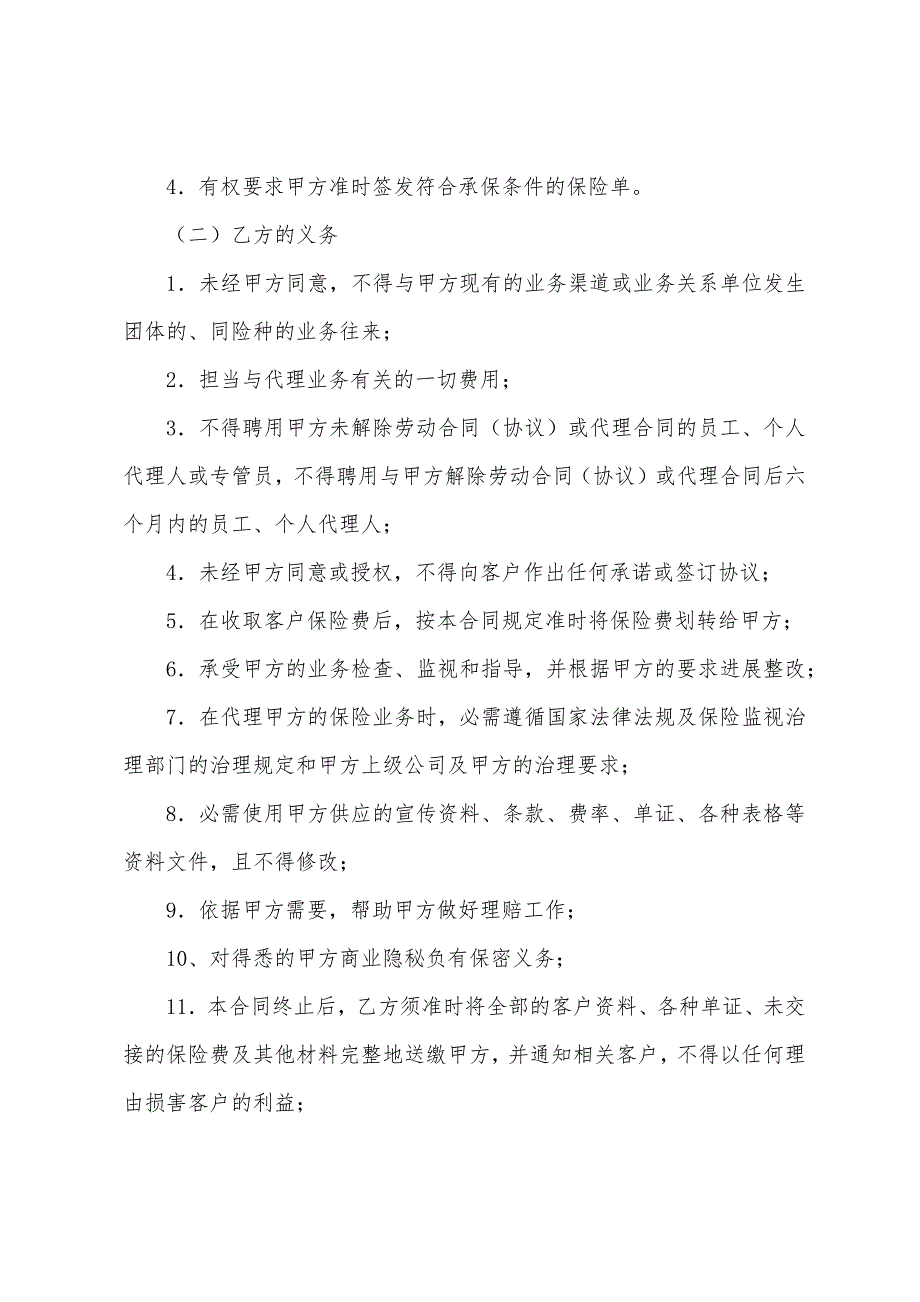 4．有权要求甲方准时签发符合承保条件的保险单。
（二）乙方的义务
1．未经甲方同意，不得与甲方现有的业务渠道或业务关系单位发生
团体的、同险种的业务往来；
2．担当与代理业务有关的一切费用；
3．不得聘用甲方未解除劳动合同（协议）或代理合同的员工、个人
代理人或专管员，不得聘用与甲方解除劳动合同（协议）或代理合同后六
个月内的员工、个人代理人；
4．未经甲方同意或授权，不得向客户作出任何承诺或签订协议；
5．在收取客户保险费后，按本合同规定准时将保险费划转给甲方；
6．承受甲方的业务检查、监视和指导，并根据甲方的要求进展整改；
7．在代理甲方的保险业务时，必需遵循国家法律法规及保险监视治
理部门的治理规定和甲方上级公司及甲方的治理要求；
8．必需使用甲方供应的宣传资料、条款、费率、单证、各种表格等
资料文件，且不得修改；
9．依据甲方需要，帮助甲方做好理赔工作；
10、对得悉的甲方商业隐秘负有保密义务；
11．本合同终止后，乙方须准时将全部的客户资料、各种单证、未交
接的保险费及其他材料完整地送缴甲方，并通知相关客户，不得以任何理
由损害客户的利益；